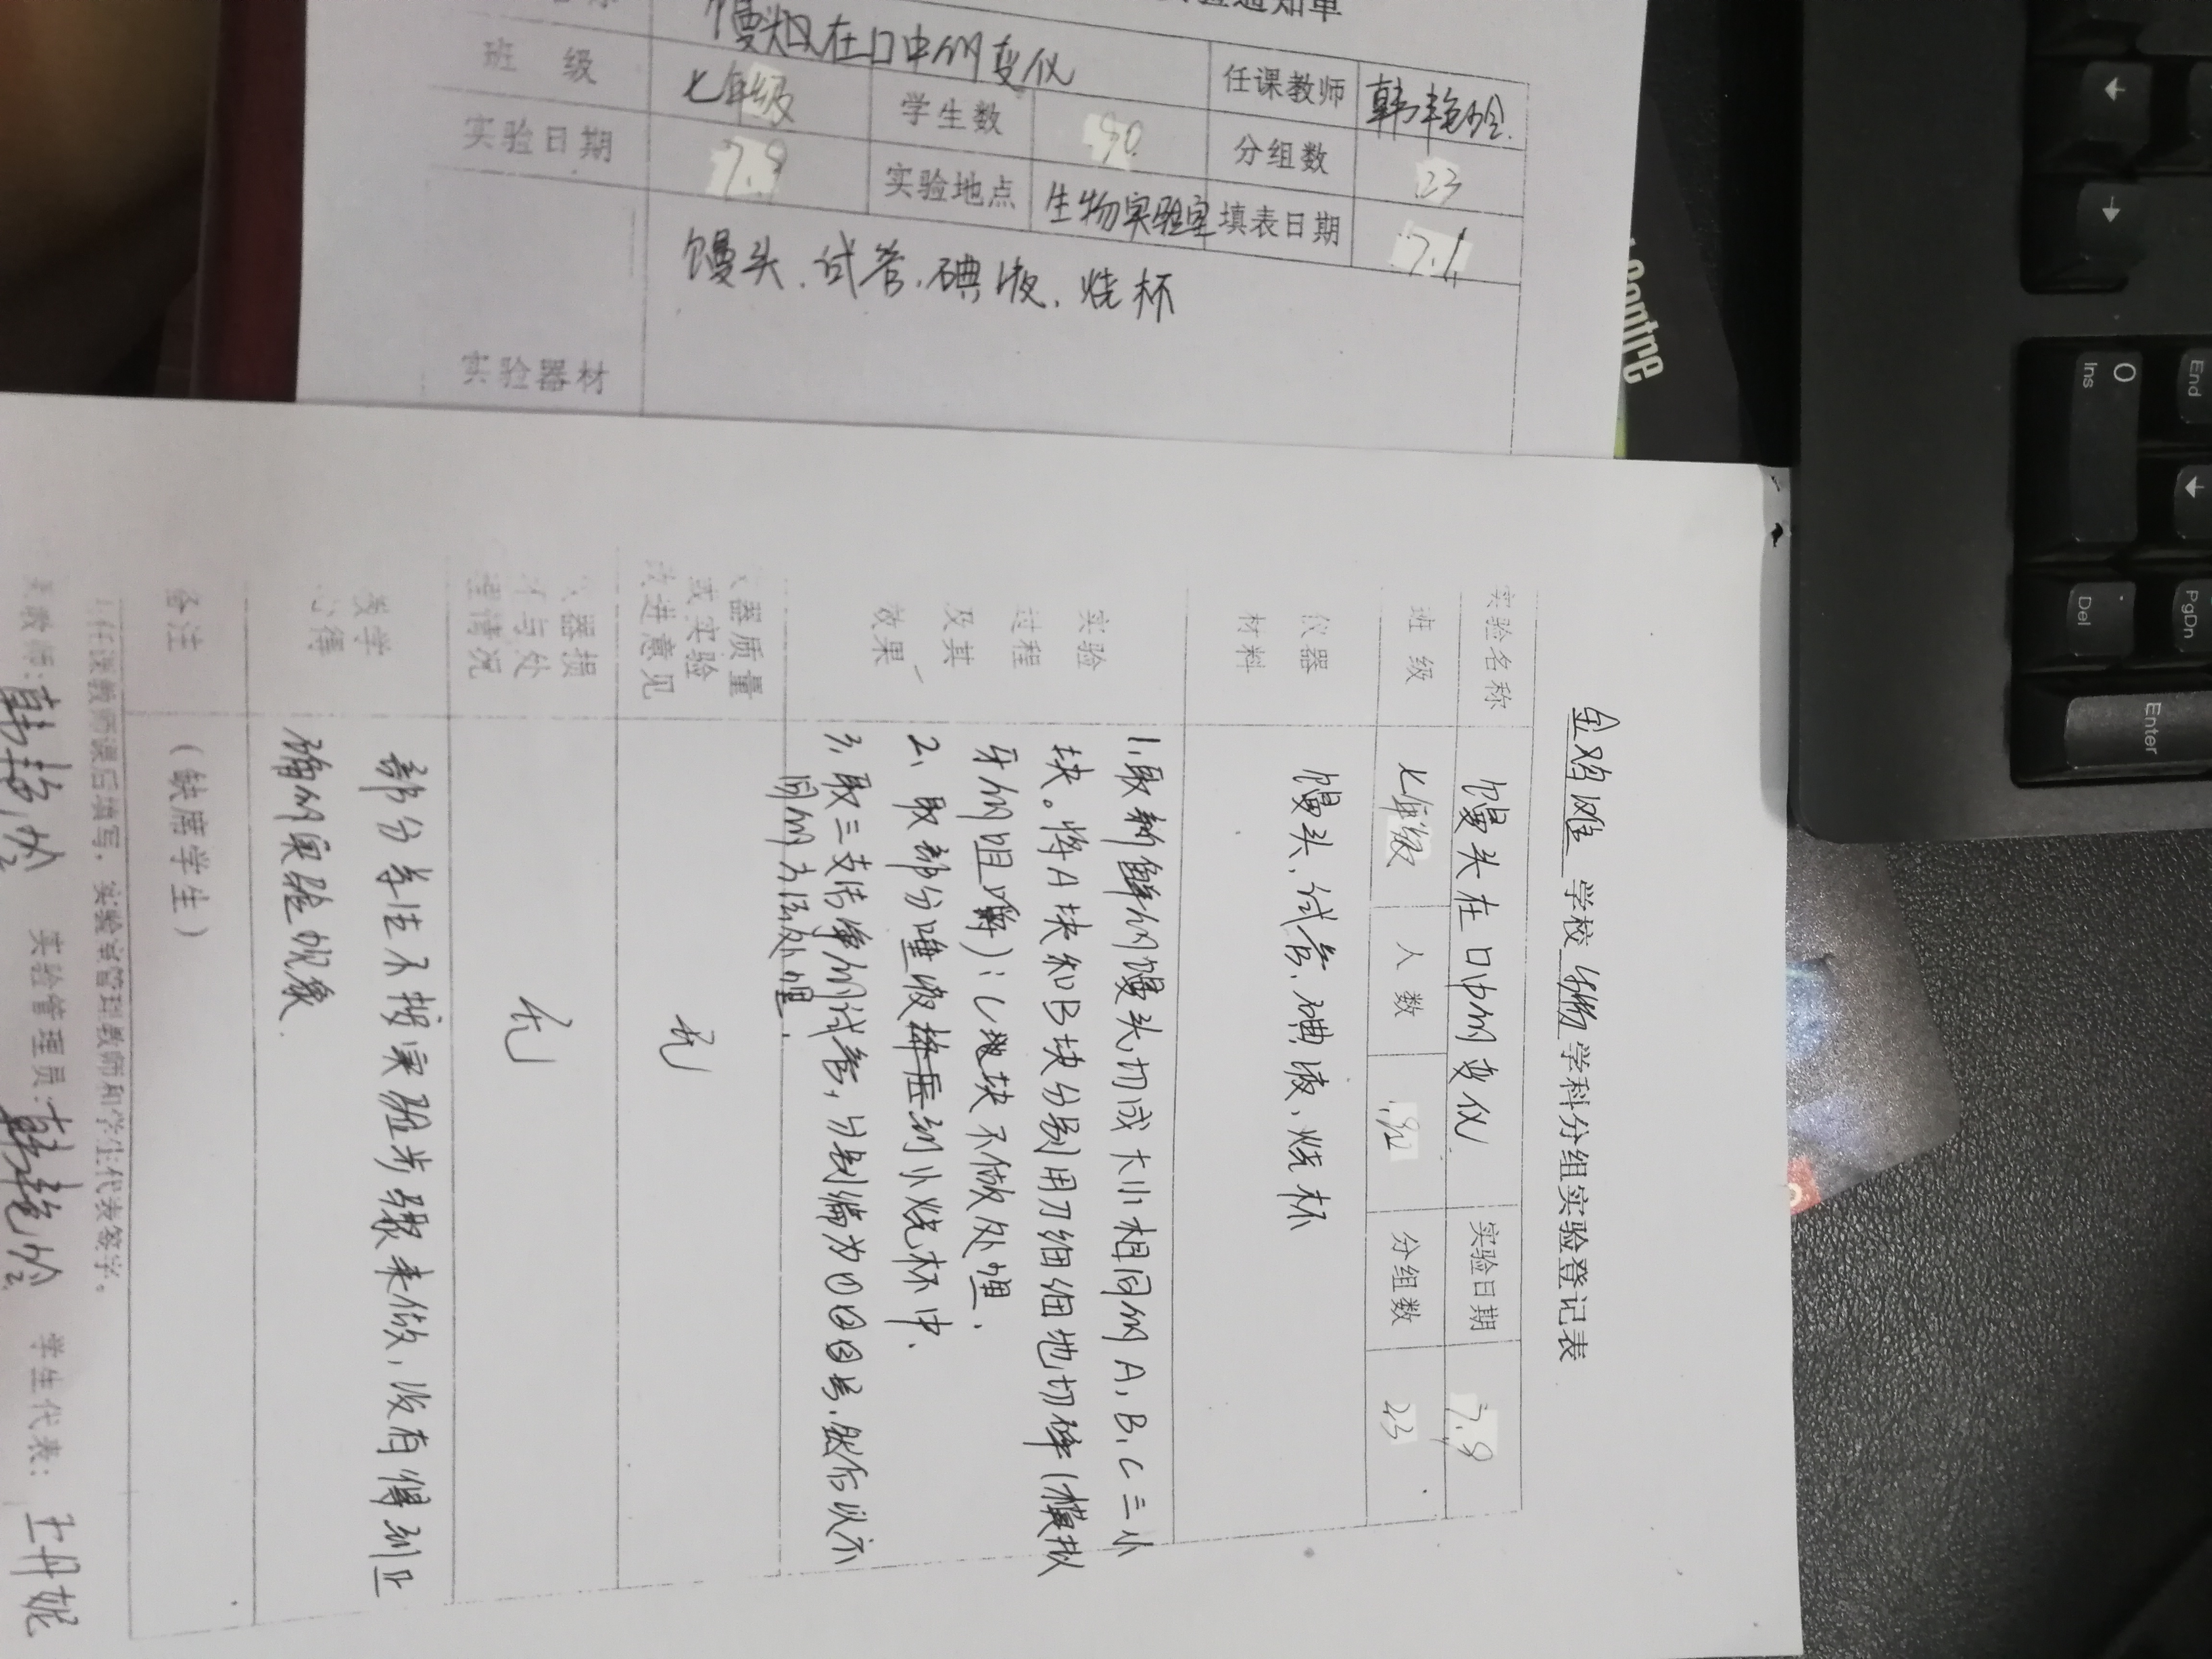 验通知单
馒头在口中的变化
任课教师
韩艳玲
班 级
七年级
学生数
90
分组数
23
实验日期
7.9
实验地点
生物实验室
填表日期
7.1
实验器材
馒头、试管、碘液、烧杯
金鸡滩 学校 生物 学科分组实验登记表
实验名称
馒头在口中的变化
实验日期
7.9
班 级
七年级
人 数
92
分组数
23
仪器
材料
馒头、试管、碘液、烧杯
实验
过程
及其
效果
1、取新鲜的馒头切成大小相同的A、B、C三小
块。将A块和B块分别用刀细细地切碎(模拟
牙的咀嚼);C块不做处理.
2、取部分唾液到小烧杯中.
3、取三支洁净的试管,分别编为①②③号,然后以不
同的方法处理.
器质量
或实验
改进意见
无
器损
与处
理情况
无
教学
心得
部分学生不按实验步骤来做,没有得到正
确的实验现象.
备注
(缺席学生)
任课教师课后填写,实验室管理教师和学生代表签字。
教师:韩艳玲
实验管理员:韩艳玲
学生代表:王丹妮
centre
0
Ins
End
Del
PgDn
Enter